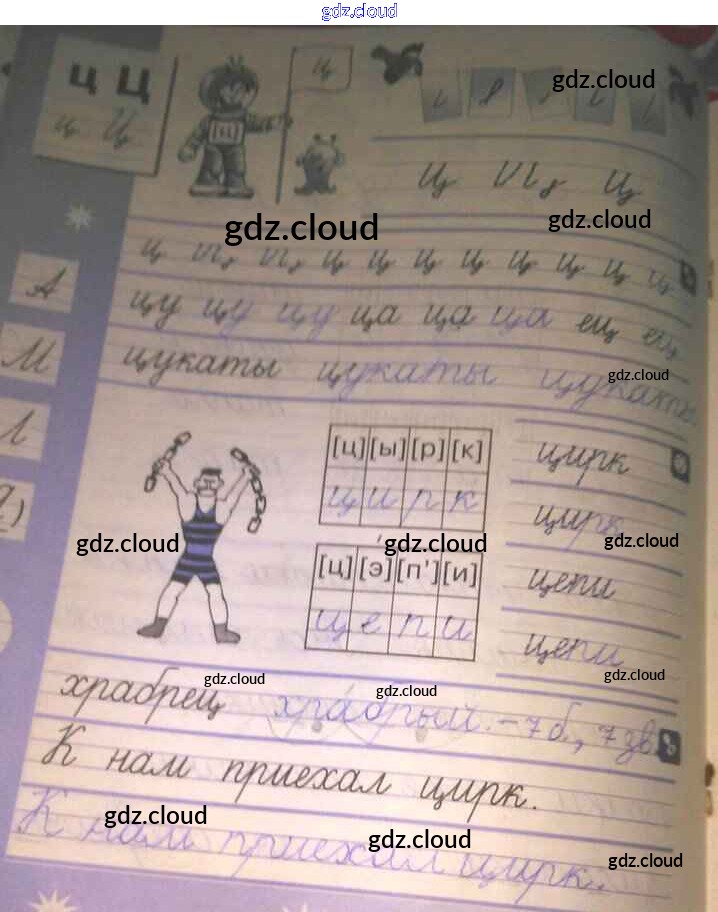 gdz.cloud
ц Ц
ц Ц
[ц]
ц
gdz.cloud
ц
gdz.cloud
gdz.cloud
ц ц ц ц ц ц ц ц
А
цу цу цу ца ца ца ец ец
М
цукаты цукаты цукаты
gdz.cloud
Л
[ц] [ы] [р] [к]
ц и р к
цирк
цирк
gdz.cloud
gdz.cloud
gdz.cloud
[ц] [э́] [п'] [и]
ц е п и
цепи
цепи
gdz.cloud
gdz.cloud
gdz.cloud
храбрец храбрый. - 7 б, 7 зв.
К нам приехал цирк.
gdz.cloud
gdz.cloud
gdz.cloud
К нам приехал цирк.